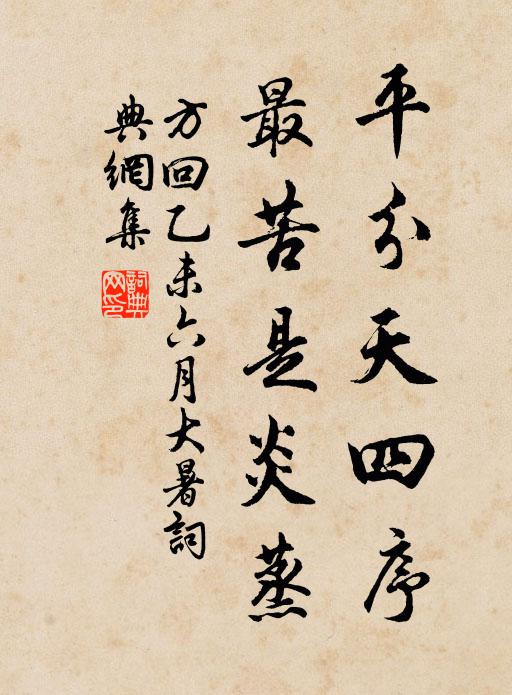 平分天四序
最苦是炎蒸
方回乙未六月大暑詞
典網集
詞典网印